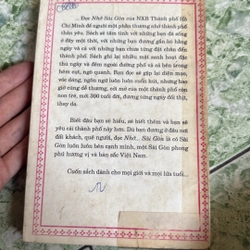 ... Đọc Nhớ Sài Gòn của NXB Thành phố Hồ
Chí Minh để người một phần thương nhớ thành phố
thân yêu. Sách sẽ tâm tình với những bạn đã sống
ở đây một thời, với những bạn đang gắn bó hàng
ngày và cả với những bạn chưa từng đặt chân đến
thành phố. Sách ghi lại nhiều mặt sinh hoạt đặc
thù ngày và đêm ngoài đường phố và cả bên trong
hẻm cụt, ngõ quanh. Bạn đọc sẽ gặp lại điệu múa,
véo dáng, ngôn ngữ luôn luôn cuốn hút, những bạn
giờ cũng dễ thương, cởi mở của một thành phố vẹn
non trẻ, mới 300 tuổi đời, đương từng ngày đổi thịt,
thay da.
Biết đâu bạn sẽ hiểu, sẽ biết thêm và bạn sẽ
yêu cái thành phố này hơn. Dù bạn đương ở đâu nơi
đất khách, quê người, đọc Nhớ... Sài Gòn là có Sài
Gòn luôn luôn bên cạnh mình, một Sài Gòn phong
phú hương vị và bản sắc Việt Nam.
Cuốn sách dành cho mọi giới và mọi lứa tuổi...